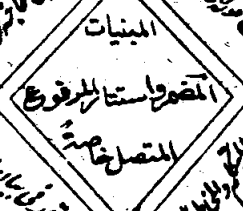 المبنيات
المضمر واستتار المرفوع
المتصل خاصةً